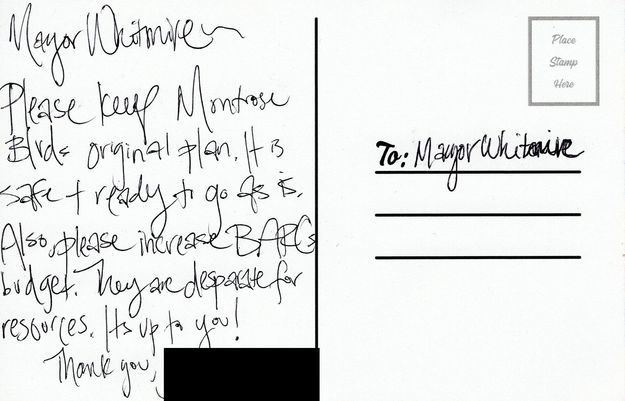 Mayor Whitmire
Please keep Montrose
Blvd's original plan. It is
safe + ready to go as is.
Also, please increase BARCs
budget. They are desparate for
resources. Its up to you!
Thank you,
Place
Stamp
Here
To: Mayor Whitmire